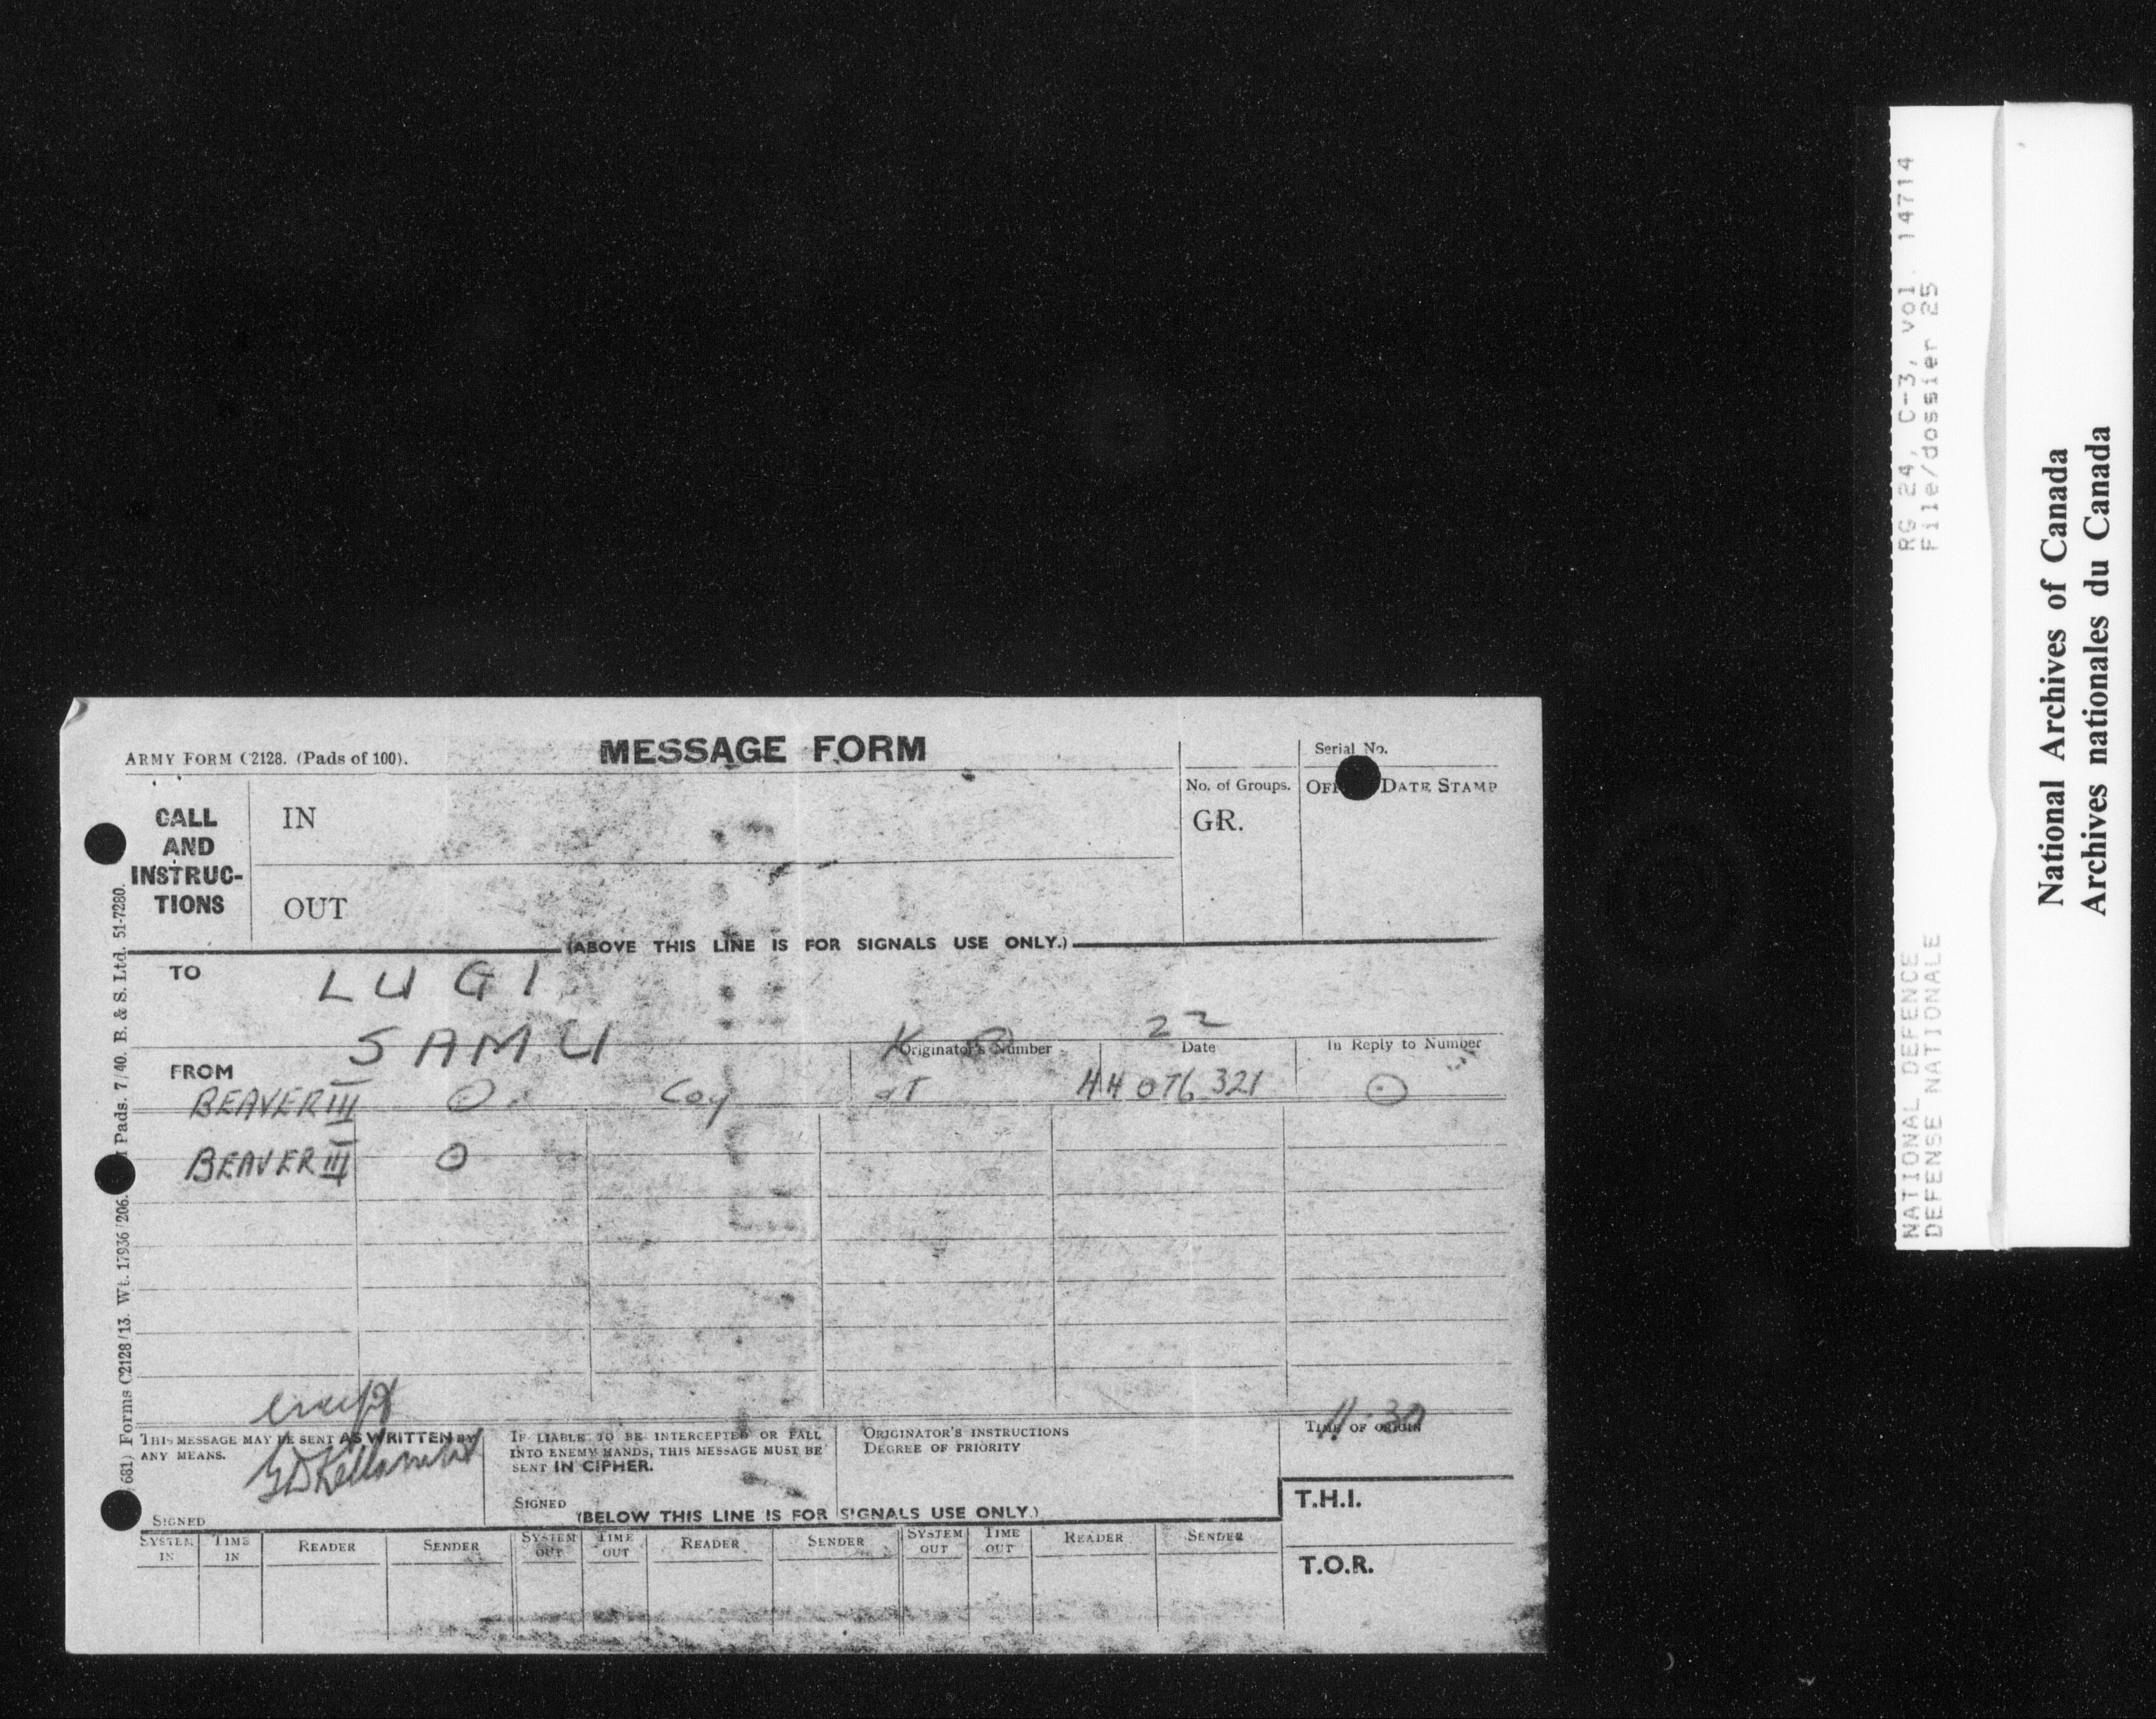 MESSAGE FORM
ARMY FORM C2128. (Pads of 100).
Serial No.
No. of Groups.
DATE STAMP
CALL AND INSTRUC- TIONS
IN
GR.
OUT
(ABOVE THIS LINE IS FOR SIGNALS USE ONLY.)
TO
LUGI
SAMU
22
FROM
Originator's Number
Date
In Reply to Number
BEAVER III
Coy
at
44 076 321
BEAVER III
11 30
THIS MESSAGE MAY BE SENT AS WRITTEN BY ANY MEANS.
IF LIABLE TO BE INTERCEPTED OR FALL INTO ENEMY HANDS, THIS MESSAGE MUST BE SENT IN CIPHER.
ORIGINATOR'S INSTRUCTIONS
DEGREE OF PRIORITY
TIME OF ORIGIN
SIGNED
SIGNED
(BELOW THIS LINE IS FOR SIGNALS USE ONLY.)
T.H.I.
SYSTEM IN
TIME IN
READER
SENDER
SYSTEM OUT
TIME OUT
READER
SENDER
SYSTEM OUT
TIME OUT
READER
SENDER
T.O.R.
681) Forms C2128/13. Wt. 17936/206. Pads. 7/40. B. & S. Ltd. 51-7280.
RG 24, C-3, vol. 14714
File/dossier 25
NATIONAL DEFENCE
DEFENSE NATIONALE
National Archives of Canada
Archives nationales du Canada